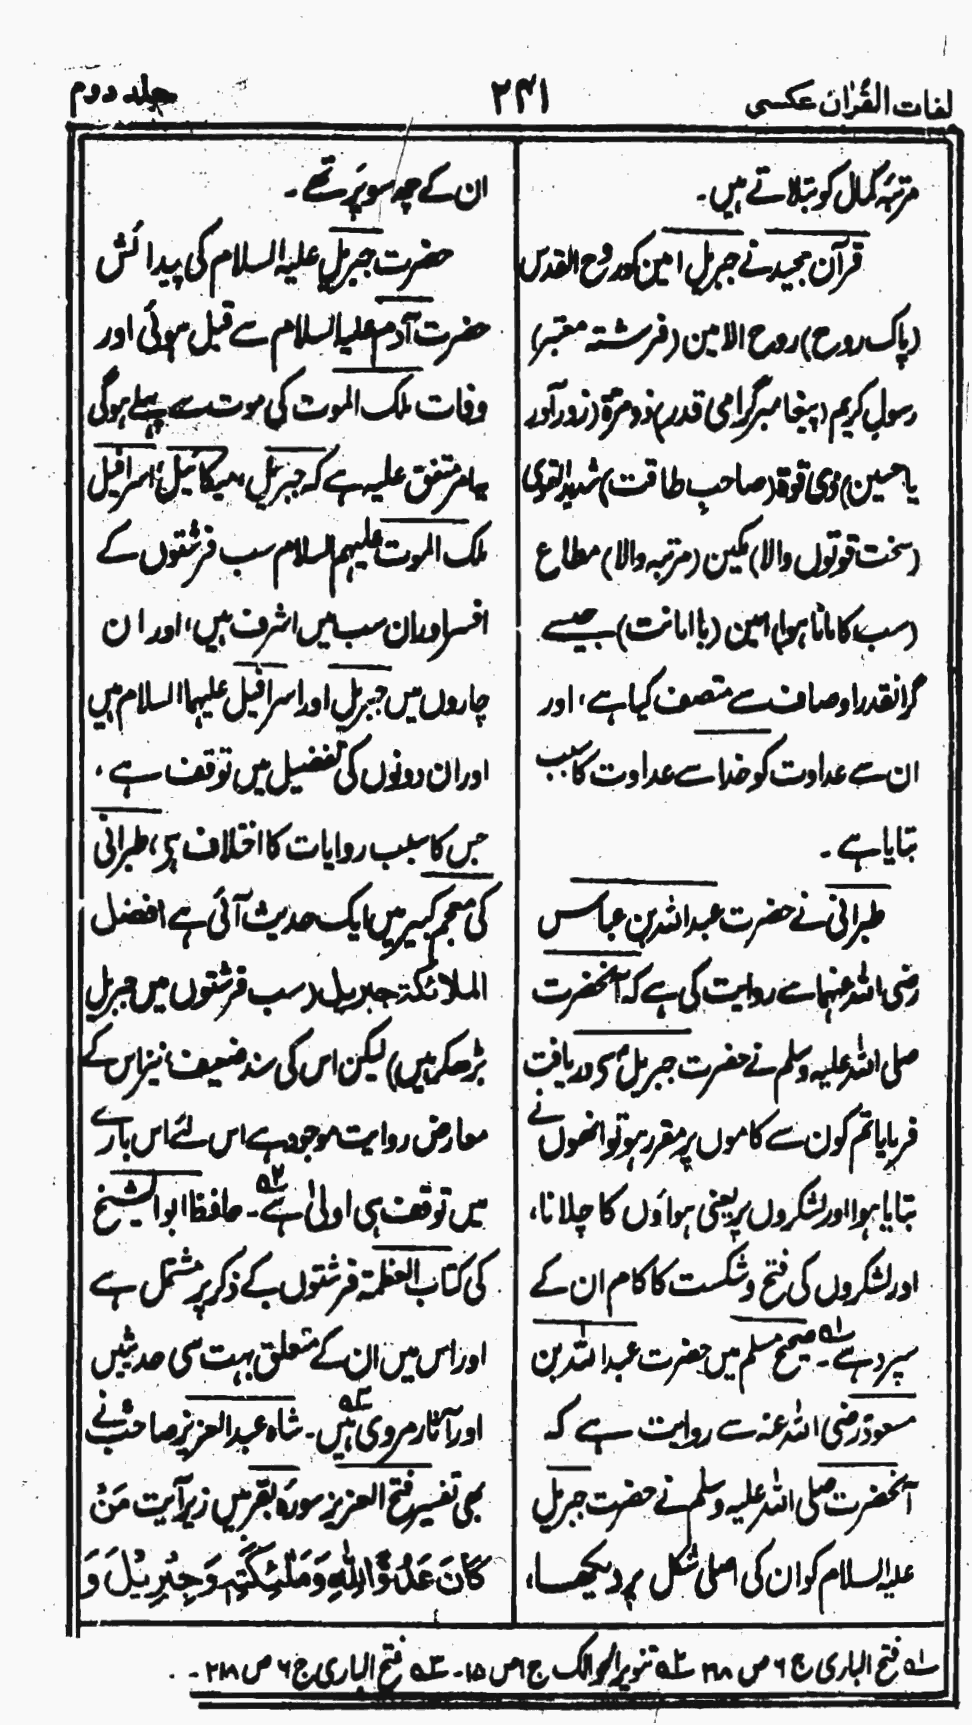 لغات القرآن عکسی
۲۴۱
جلد دوم
مرتبۂ کمال کو بتلاتے ہیں۔
قرآن مجید نے جبریلِ امین کو روح القدس
(پاک روح) روح الامین (فرشتہ معتبر)
رسولِ کریم (پیغامبر گرامی قدر) ذو مِرّۃ (زور آور
یا حسین) ذی قوۃ (صاحبِ طاقت) شدید القویٰ
(سخت قوتوں والا) مکین (مرتبہ والا) مطاع
(سب کا مانا ہوا) امین (با امانت) جیسے
گرانقدر اوصاف سے متصف کیا ہے، اور
ان سے عداوت کو خدا سے عداوت کا سبب
بتایا ہے۔
طبرانی نے حضرت عبداللہ بن عباس
رضی اللہ عنہما سے روایت کی ہے کہ آنحضرت
صلی اللہ علیہ وسلم نے حضرت جبریلؑ سے دریافت
فرمایا تم کون سے کاموں پر مقرر ہو تو انھوں نے
بتایا ہوا اور لشکروں پر یعنی ہواؤں کا چلانا،
اور لشکروں کی فتح و شکست کا کام ان کے
سپرد ہے ۱؎۔ صحیح مسلم میں حضرت عبداللہ بن
مسعود رضی اللہ عنہ سے روایت ہے کہ
آنحضرت صلی اللہ علیہ وسلم نے حضرت جبریل
علیہ السلام کو ان کی اصلی شکل پر دیکھا،
ان کے چھ سو پَر تھے۔
حضرت جبریل علیہ السلام کی پیدائش
حضرت آدم علیہ السلام سے قبل ہوئی اور
وفات ملک الموت کی موت سے پہلے ہوگی
یہ امر متفق علیہ ہے کہ جبریل، میکائیل، اسرافیل
ملک الموت علیہم السلام سب فرشتوں کے
افسر اور ان سب میں اشرف ہیں، اور ان
چاروں میں جبریل اور اسرافیل علیہما السلام ہیں
اور ان دونوں کی تفضیل میں توقف ہے،
جس کا سبب روایات کا اختلاف ہے، طبرانی
کی معجم کبیر میں ایک حدیث آئی ہے افضل
الملائکۃ جبریل (سب فرشتوں میں جبریل
بڑھ کر ہیں) لیکن اس کی سند ضعیف، نیز اس کے
معارض روایت موجود ہے اس لئے اس بارے
میں توقف ہی اولیٰ ہے ۲؎۔ حافظ ابوالشیخ
کی کتاب العظمۃ فرشتوں کے ذکر پر مشتمل ہے
اور اس میں ان کے متعلق بہت سی حدیثیں
اور آثار مروی ہیں ۳؎۔ شاہ عبدالعزیز صاحبؒ نے
بھی تفسیر فتح العزیز سورۂ بقر میں زیر آیت مَنْ
كَانَ عَدُوًّا لِلّٰهِ وَمَلٰئِكَتِهٖ وَجِبْرِيْلَ وَ
۱؎ فتح الباری ج ۶ ص ۲۱۸ ۲؎ تنویر الحوالک ج ۱ ص ۱۵۔ ۳؎ فتح الباری ج ۶ ص ۲۱۸۔